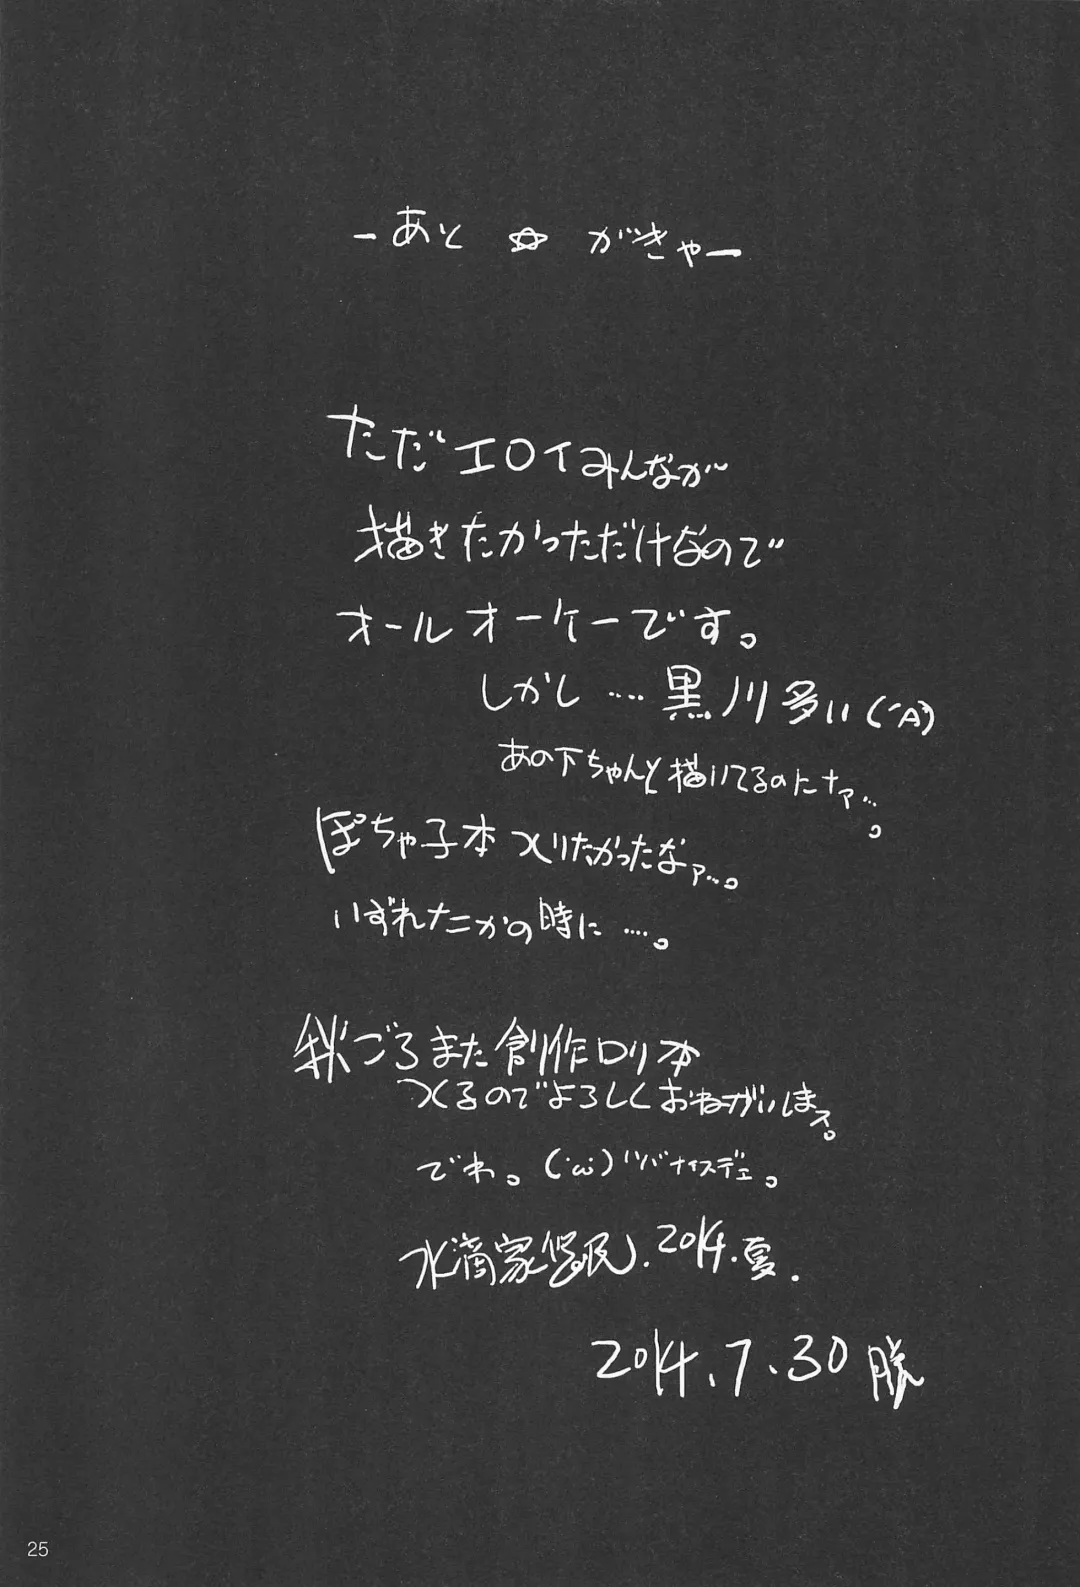 ーあと☆がきゃー
ただエロイみんなが
描きたかっただけなので
オールオーケーです。
しかし‥‥黒川多い(´A`)
あの下ちゃんと描いてるのにナァ…。
ぽちゃ子本つくりたかったなァ…。
いずれナニかの時に‥‥。
秋ごろまた創作ロリ本
つくるのでよろしくおねがいしまス。
でわ。(´ω`)
水滴家悠民. 2014.夏.
2014.7.30
25